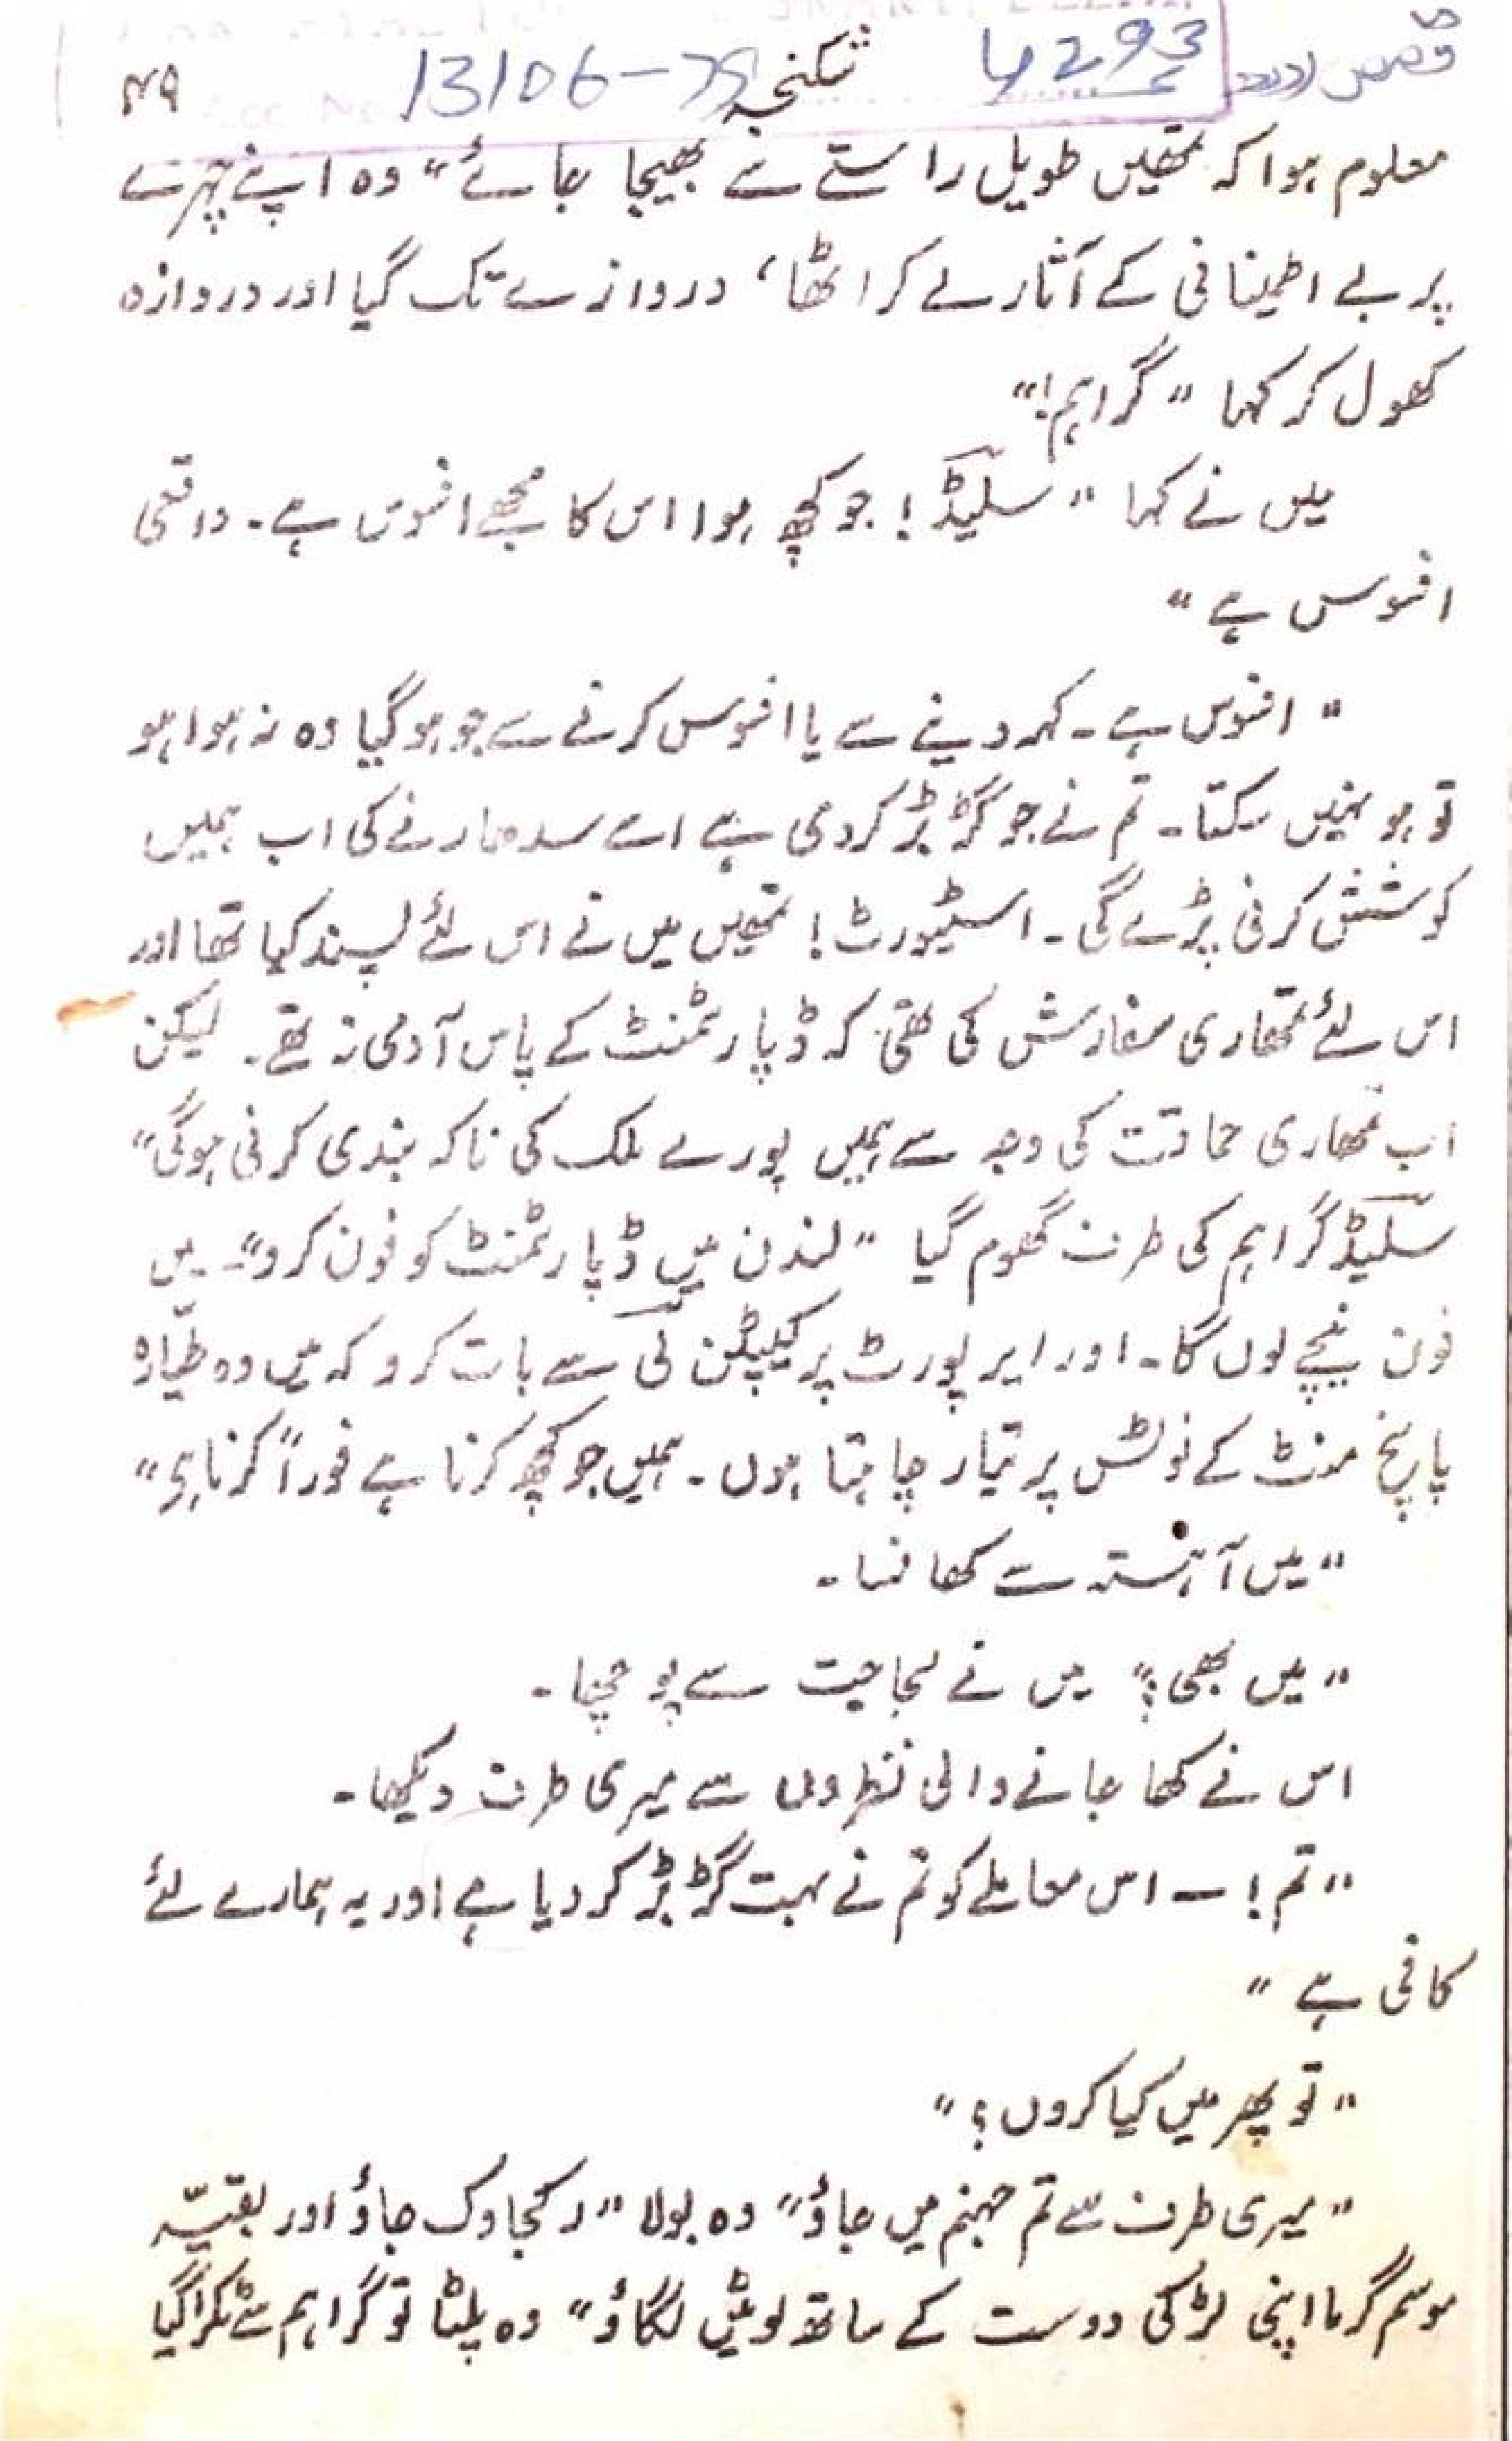 قصص اردو 4293 شکنجہ 13106-79 ۴۹
معلوم ہوا کہ تمھیں طویل راستے سے بھیجا جائے“ وہ اپنے چہرے
پر بے اطمینانی کے آثار لے کر اٹھا، دروازے تک گیا اور دروازہ
کھول کر کہا ”گراہم!“
میں نے کہا ”سلیڈ! جو کچھ ہوا اس کا مجھے افسوس ہے۔ واقعی
افسوس ہے“
”افسوس ہے۔ کہہ دینے سے یا افسوس کرنے سے جو ہو گیا وہ نہ ہوا ہو
تو ہو نہیں سکتا۔ تم نے جو گڑبڑ کر دی ہے اسے سدھارنے کی اب ہمیں
کوشش کرنی پڑے گی۔ اسٹیورٹ! تمھیں میں نے اس لئے پسند کیا تھا اور
اس لئے تمھاری سفارش کی تھی کہ ڈپارٹمنٹ کے پاس آدمی نہ تھے۔ لیکن
اب تمھاری حماقت کی وجہ سے ہمیں پورے ملک کی ناکہ بندی کرنی ہوگی“
سلیڈ گراہم کی طرف گھوم گیا ”لندن میں ڈپارٹمنٹ کو فون کرو“۔ میں
فون نیچے لوں گا۔ اور ایرپورٹ پر کیپٹن لی سے بات کرو کہ میں وہ طیّارہ
پانچ منٹ کے نوٹس پر تیار چاہتا ہوں۔ ہمیں جو کچھ کرنا ہے فوراً کرنا ہی“
”میں آہستہ سے کھانسا۔
”میں بھی؟“ میں نے لجاجیت سے پوچھا۔
اس نے کھا جانے والی نظروں سے میری طرف دیکھا۔
”تم! — اس معاملے کو تم نے بہت گڑبڑ کر دیا ہے اور یہ ہمارے لئے
کافی ہے“
”تو پھر میں کیا کروں؟“
”میری طرف سے تم جہنم میں جاؤ“ وہ بولا ”رکجاوک جاؤ اور بقیہ
موسم گرما اپنی لڑکی دوست کے ساتھ لوٹیں لگاؤ“ وہ پلٹا تو گراہم سے ٹکرا گیا